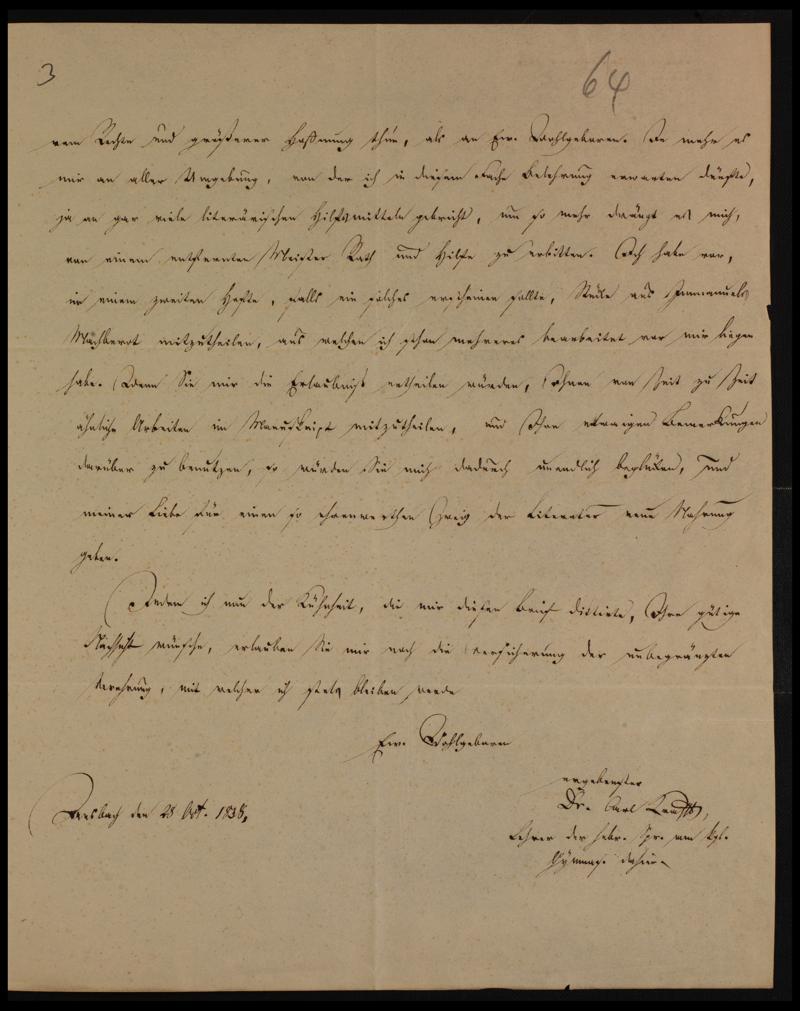 3
64
vom Rechte und größerer Hoffnung thun, als an Ew. Wohlgeboren. Je mehr es
mir an aller Umgebung, von der ich in diesem Fache Belehrung erwarten dürfte,
ja an gar viele literärischen Hilfsmitteln gebricht, um so mehr drängt es mich,
von einem entfernten Meister Rath und Hilfe zu erbitten. Ich habe vor,
in einem zweiten Hefte, falls ein solches erscheinen sollte, Stücke aus Immanuels
Machberot mitzutheilen, aus welchen ich schon mehreres bearbeitet vor mir liegen
habe. Wenn Sie mir die Erlaubniß ertheilen würden, Ihnen von Zeit zu Zeit
ähnliche Arbeiten im Manuskript mitzutheilen, und Ihre etwaigen Bemerkungen
darüber zu benutzen, so würden Sie mich dadurch unendlich beglücken, und
meiner Liebe für einen so ehrenwerthen Zweig der Literatur neue Nahrung
geben.
Indem ich nun der Kühnheit, die mir diesen Brief dictirte, Ihre gütige
Nachsicht wünsche, erlauben Sie mir noch die Versicherung der unbegränzten
Verehrung, mit welcher ich stets bleiben werde
Ew. Wohlgeboren
ergebenster
Dr. Carl Krafft,
Lehrer der hebr. Spr. am kgl.
Gymnas. dahier
Ansbach den 28 Oct. 1838,